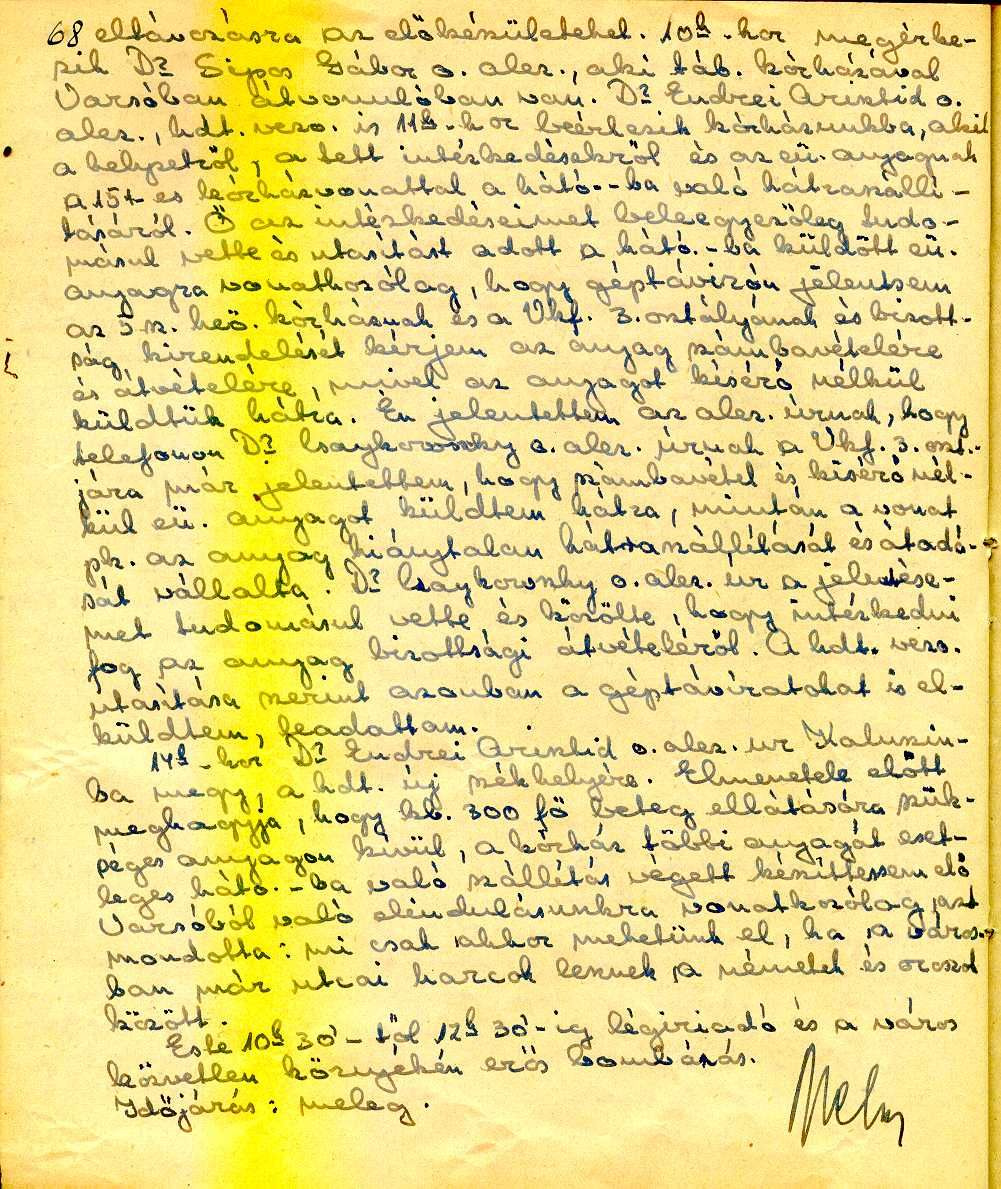 68 eltávozásra az előkészületeket. 10h-kor megérke-
zik Dr Sipos Gábor o. alez., aki táb. kórházával
Varsóban átvonulóban van. Dr Endrei Arisztid o.
alez., hdt. vezo. is 11h-kor beérkezik kórházunkba, akit
a helyzetről, a tett intézkedésekről és az eü. anyagnak
a 151-es kórházvonattal a ható.-ba való hátraszállí-
tásáról. Ő az intézkedéseimet beleegyezőleg tudo-
másul vette és utasítást adott a ható.-ba küldött eü.
anyagra vonatkozólag, hogy géptávirón jelentsem
az 5.sz. heö. kórháznak és a Vkf. 3. osztályának és bizott-
ság kirendelését kérjem az anyag számbavételére
és átvételére, mivel az anyagot kísérő nélkül
küldtük hátra. Én jelentettem az alez. úrnak, hogy
telefonon Dr Csaykovszky o. alez. úrnak a Vkf. 3. oszt.-
jára már jelentettem, hogy számbavétel és kísérő nél-
kül eü. anyagot küldtem hátra, miután a vonat
pk. az anyag hiánytalan hátraszállítását és átadá-
sát vállalta. Dr Csaykovszky o. alez. úr a jelentése-
met tudomásul vette és közölte, hogy intézkedni
fog az anyag bizottsági átvételéről. A hdt. vezo.
utasítása szerint azonban a géptáviratokat is el-
küldtem, feadattam.
14h-kor Dr Endrei Arisztid o. alez. ur Kaluszin-
ba megy, a hdt. új székhelyére. Elmenetele előtt
meghagyja, hogy kb. 300 fő beteg ellátására szük-
séges anyagon kívül, a kórház többi anyagát eset-
leges ható.-ba való szállítás végett készíttessem elő
Varsóból való elindulásunkra vonatkozólag azt
mondotta: mi csak akkor mehetünk el, ha a város-
ban már utcai harcok lesznek a németek és oroszok
között.
Este 10h 30'-től 12h 30'-ig légiriadó és a város
közvetlen környékén erős bombázás.
Időjárás: meleg.